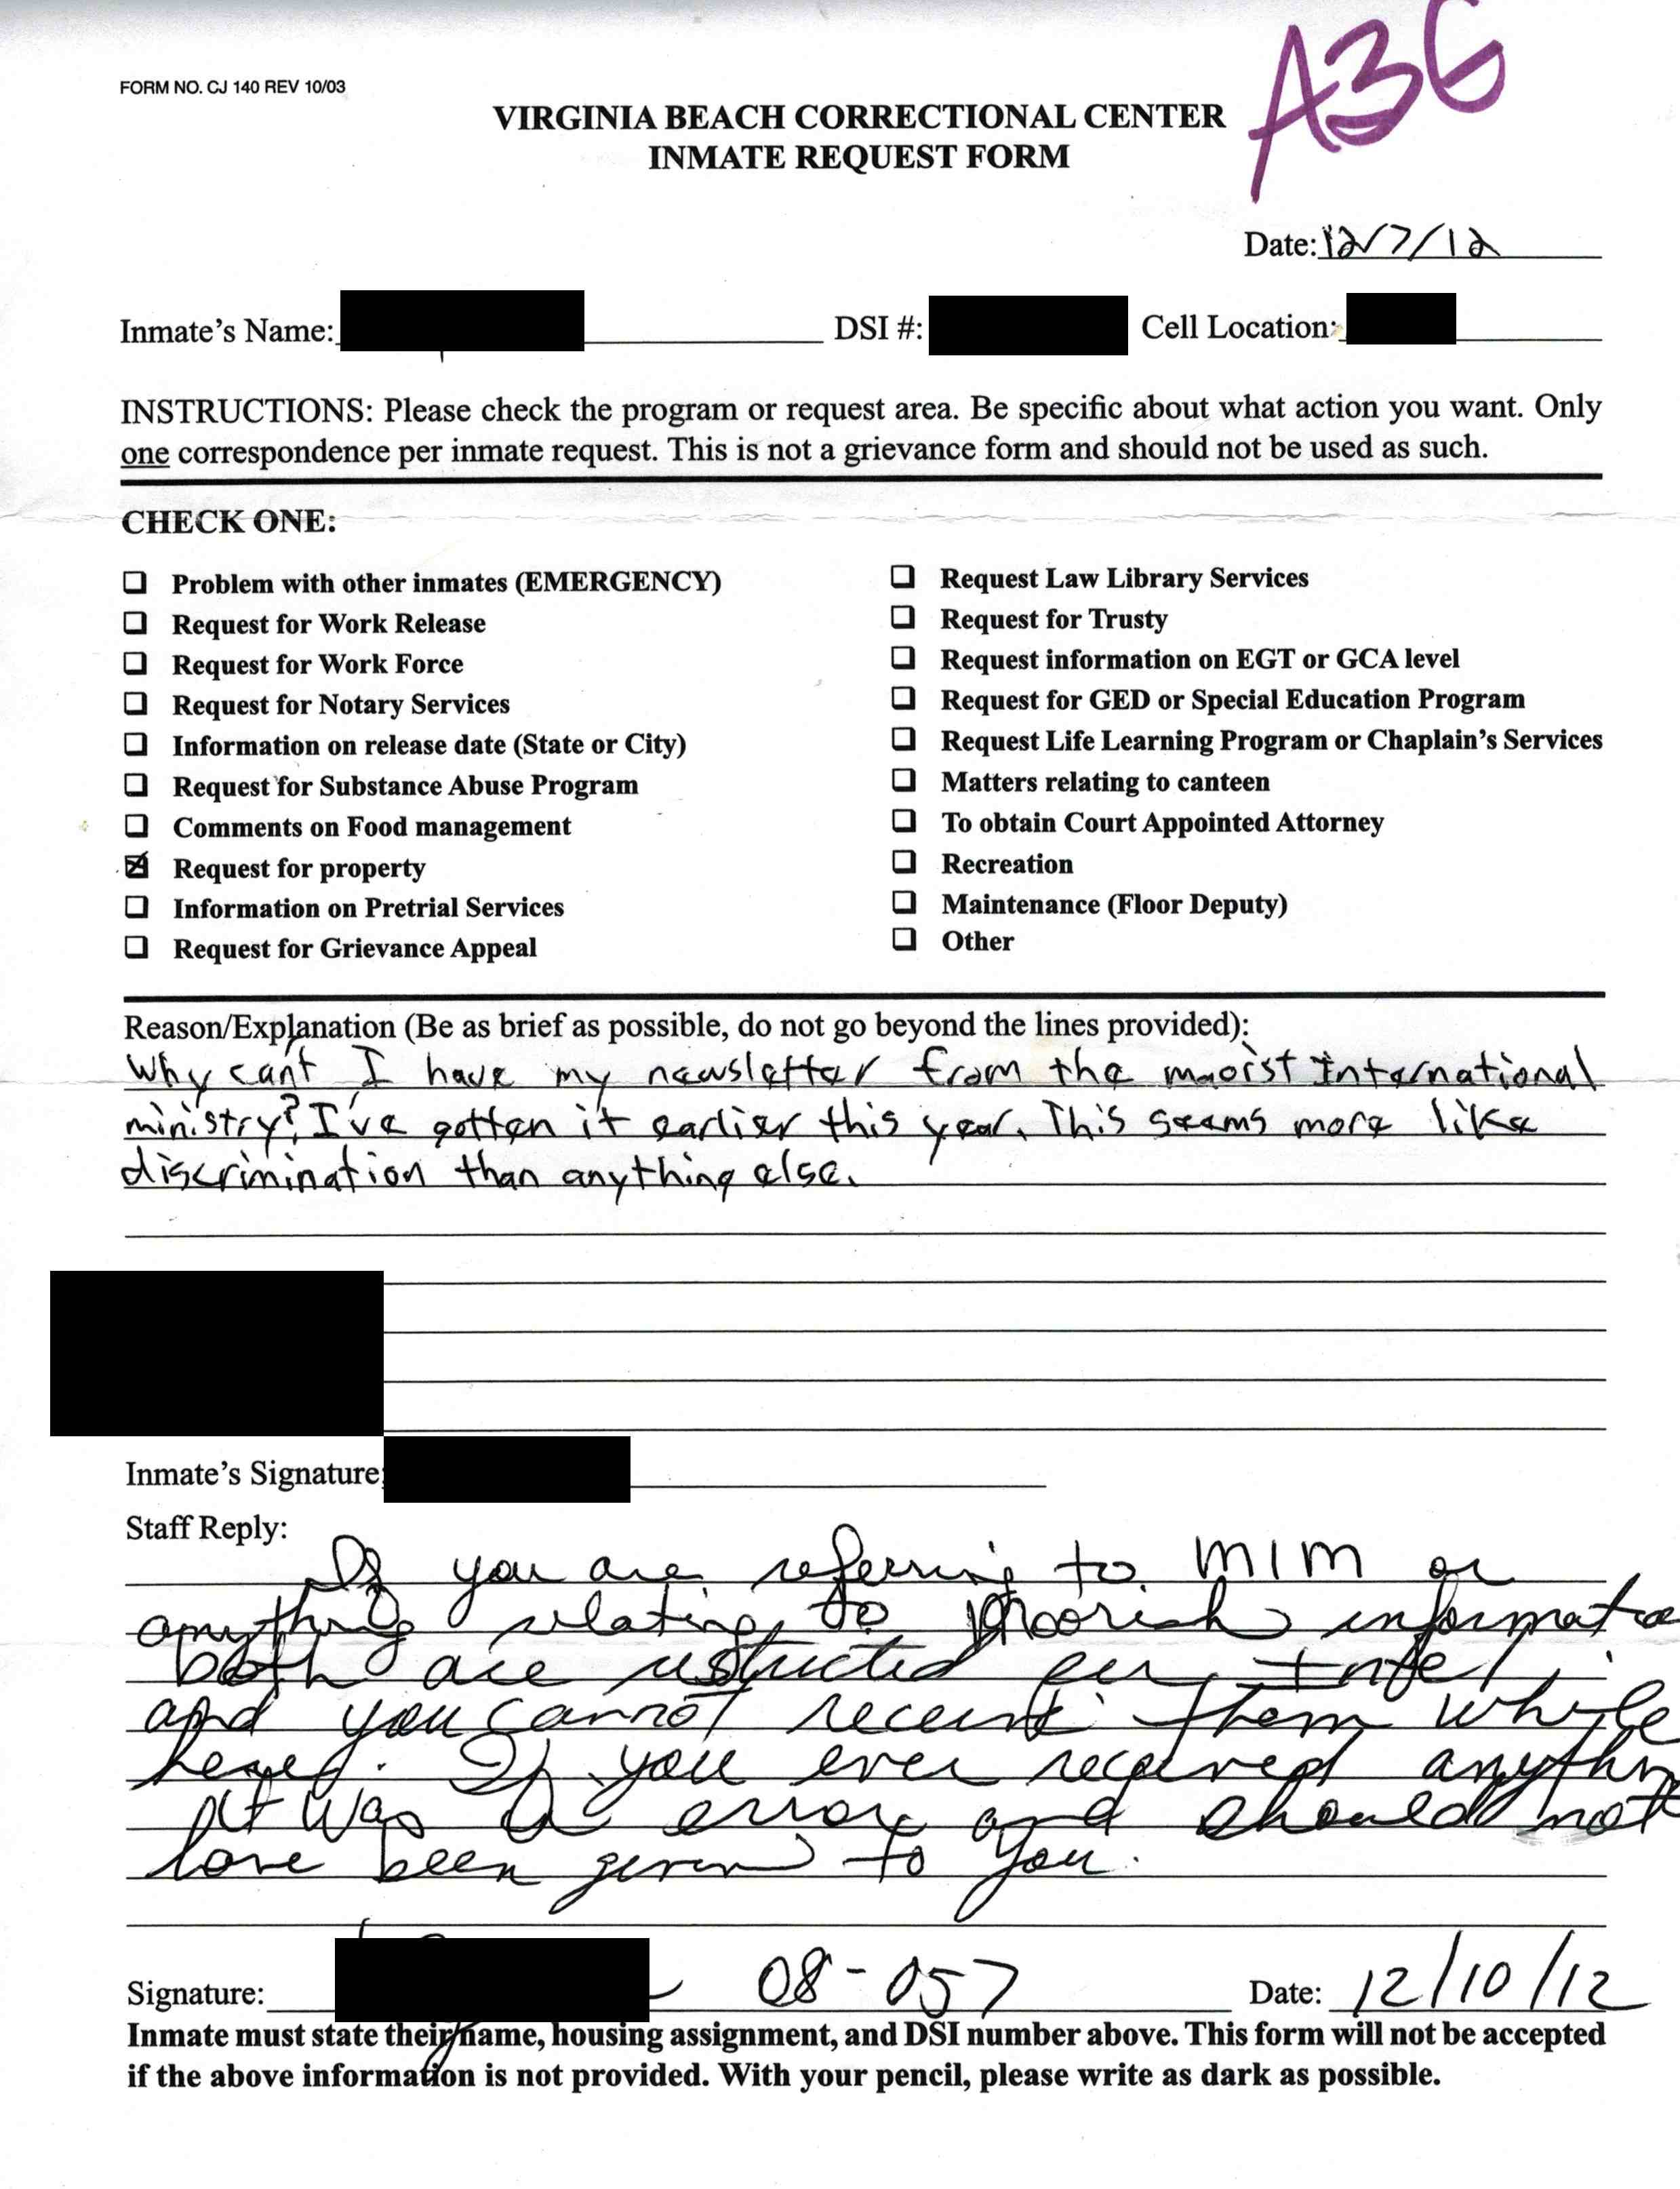 A3G
FORM NO. CJ 140 REV 10/03
VIRGINIA BEACH CORRECTIONAL CENTER
INMATE REQUEST FORM
Date: 12/7/12
Inmate's Name: DSI #: Cell Location:
INSTRUCTIONS: Please check the program or request area. Be specific about what action you want. Only
one correspondence per inmate request. This is not a grievance form and should not be used as such.
CHECK ONE:
☐ Problem with other inmates (EMERGENCY)
☐ Request for Work Release
☐ Request for Work Force
☐ Request for Notary Services
☐ Information on release date (State or City)
☐ Request for Substance Abuse Program
☐ Comments on Food management
☒ Request for property
☐ Information on Pretrial Services
☐ Request for Grievance Appeal
☐ Request Law Library Services
☐ Request for Trusty
☐ Request information on EGT or GCA level
☐ Request for GED or Special Education Program
☐ Request Life Learning Program or Chaplain's Services
☐ Matters relating to canteen
☐ To obtain Court Appointed Attorney
☐ Recreation
☐ Maintenance (Floor Deputy)
☐ Other
Reason/Explanation (Be as brief as possible, do not go beyond the lines provided):
Why can't I have my newsletter from the maoist International
ministry? I've gotten it earlier this year. This seems more like
discrimination than anything else.
Inmate's Signature
Staff Reply:
If you are referring to MIM or
anything relating to Moorish
both are restricted per Intel
and you cannot receive them while
here. If you ever received
it was a error and should not
have been given to you.
Signature: 08-057 Date: 12/10/12
Inmate must state their name, housing assignment, and DSI number above. This form will not be accepted
if the above information is not provided. With your pencil, please write as dark as possible.